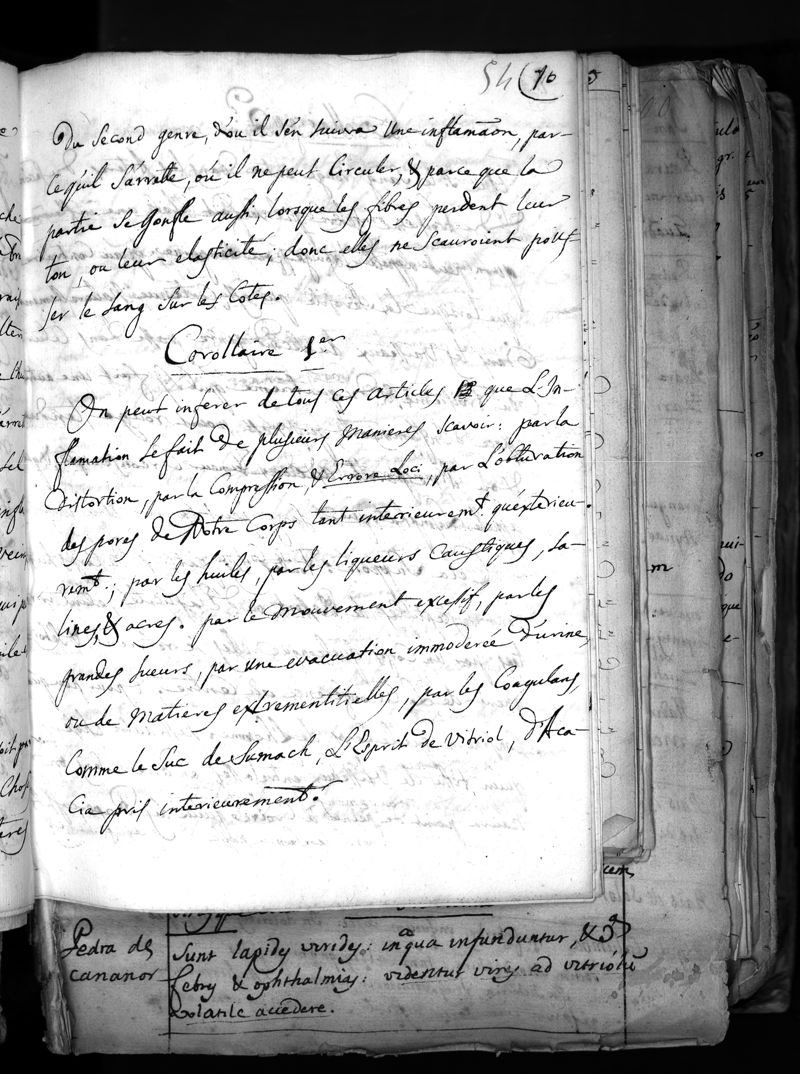 54 (70
Du Second genre, d'où il s'en suivra une inflamãon, par-
ce qu'il S'arrette, où il ne peut Circuler, & parce que la
partie se gonfle aussi, lorsque les fibres perdent leur
ton, ou leur elasticité; donc elles ne scauroient pouss-
ser le sang sur les Cotes.
Corollaire 1er
On peut inferer de tous ces articles que L'In-
flamation se fait de plusieurs manieres scavoir: par la
distortion, par la Compression, & Errore Loci, par L'obturation
des pores de Notre Corps tant interieuremt. qu'exterieu-
remt.; par les huiles, par les liqueurs caustiques, sa-
lines, & acres. par le mouvement excessif, par les
grandes sueurs, par une evacuation immoderée d'urine,
ou de matieres extrementitielles, par les Coagulans,
Comme le Suc de Sumach, L'Esprit de Vitriol, d'Aca-
cia pris interieurement.
Pedra de
cananor
Sunt lapides virides: in aqua infunduntur, &
febres & ophthalmias: videntur vires ad vitriolũ
volatile accedere.